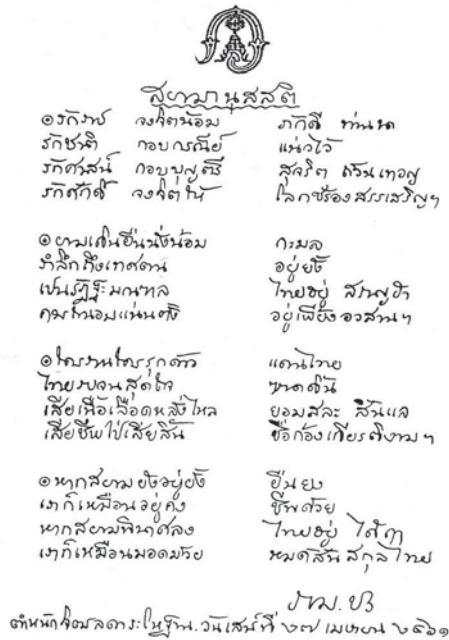 สยามานุสสติ
๏ รักราช จงจิตน้อม ภักดี ท่านนา
รักชาติ กอบกรณีย์ แน่วไว้
รักศาสน์ กอบบุญตรี สุจริต ถ้วนเทอญ
รักศักดิ์ จงจิตให้ โลกซร้องสรรเสริญฯ
๏ ยามเดินยืนนั่งน้อม กะมล
รำลึกถึงเทศตน อยู่ยั้ง
เปนรัฏฐะมณฑล ไทยอยู่ สราญฮา
ควรถนอมแน่นตั้ง อยู่เพี้ยงอวสานฯ
๏ ใครรานใครรุกด้าว แดนไทย
ไทยรบจนสุดใจ ขาดดิ้น
เสียเนื้อเลือดหลั่งไหล ยอมสละ สิ้นแล
เสียชีพไป่เสียสิ้น ชื่อก้องเกียรติงามฯ
๏ หากสยามยังอยู่ยั้ง ยืนยง
เราก็เหมือนอยู่คง ชีพด้วย
หากสยามพินาศลง ไทยอยู่ ได้ฤๅ
เราก็เหมือนมอดม้วย หมดสิ้นสกุลไทย
ราม.ปร
ตำหนักจิตรลดาระโหฐาน. วันเสาร์ที่ ๒๗ เมษายน ๒๔๖๑